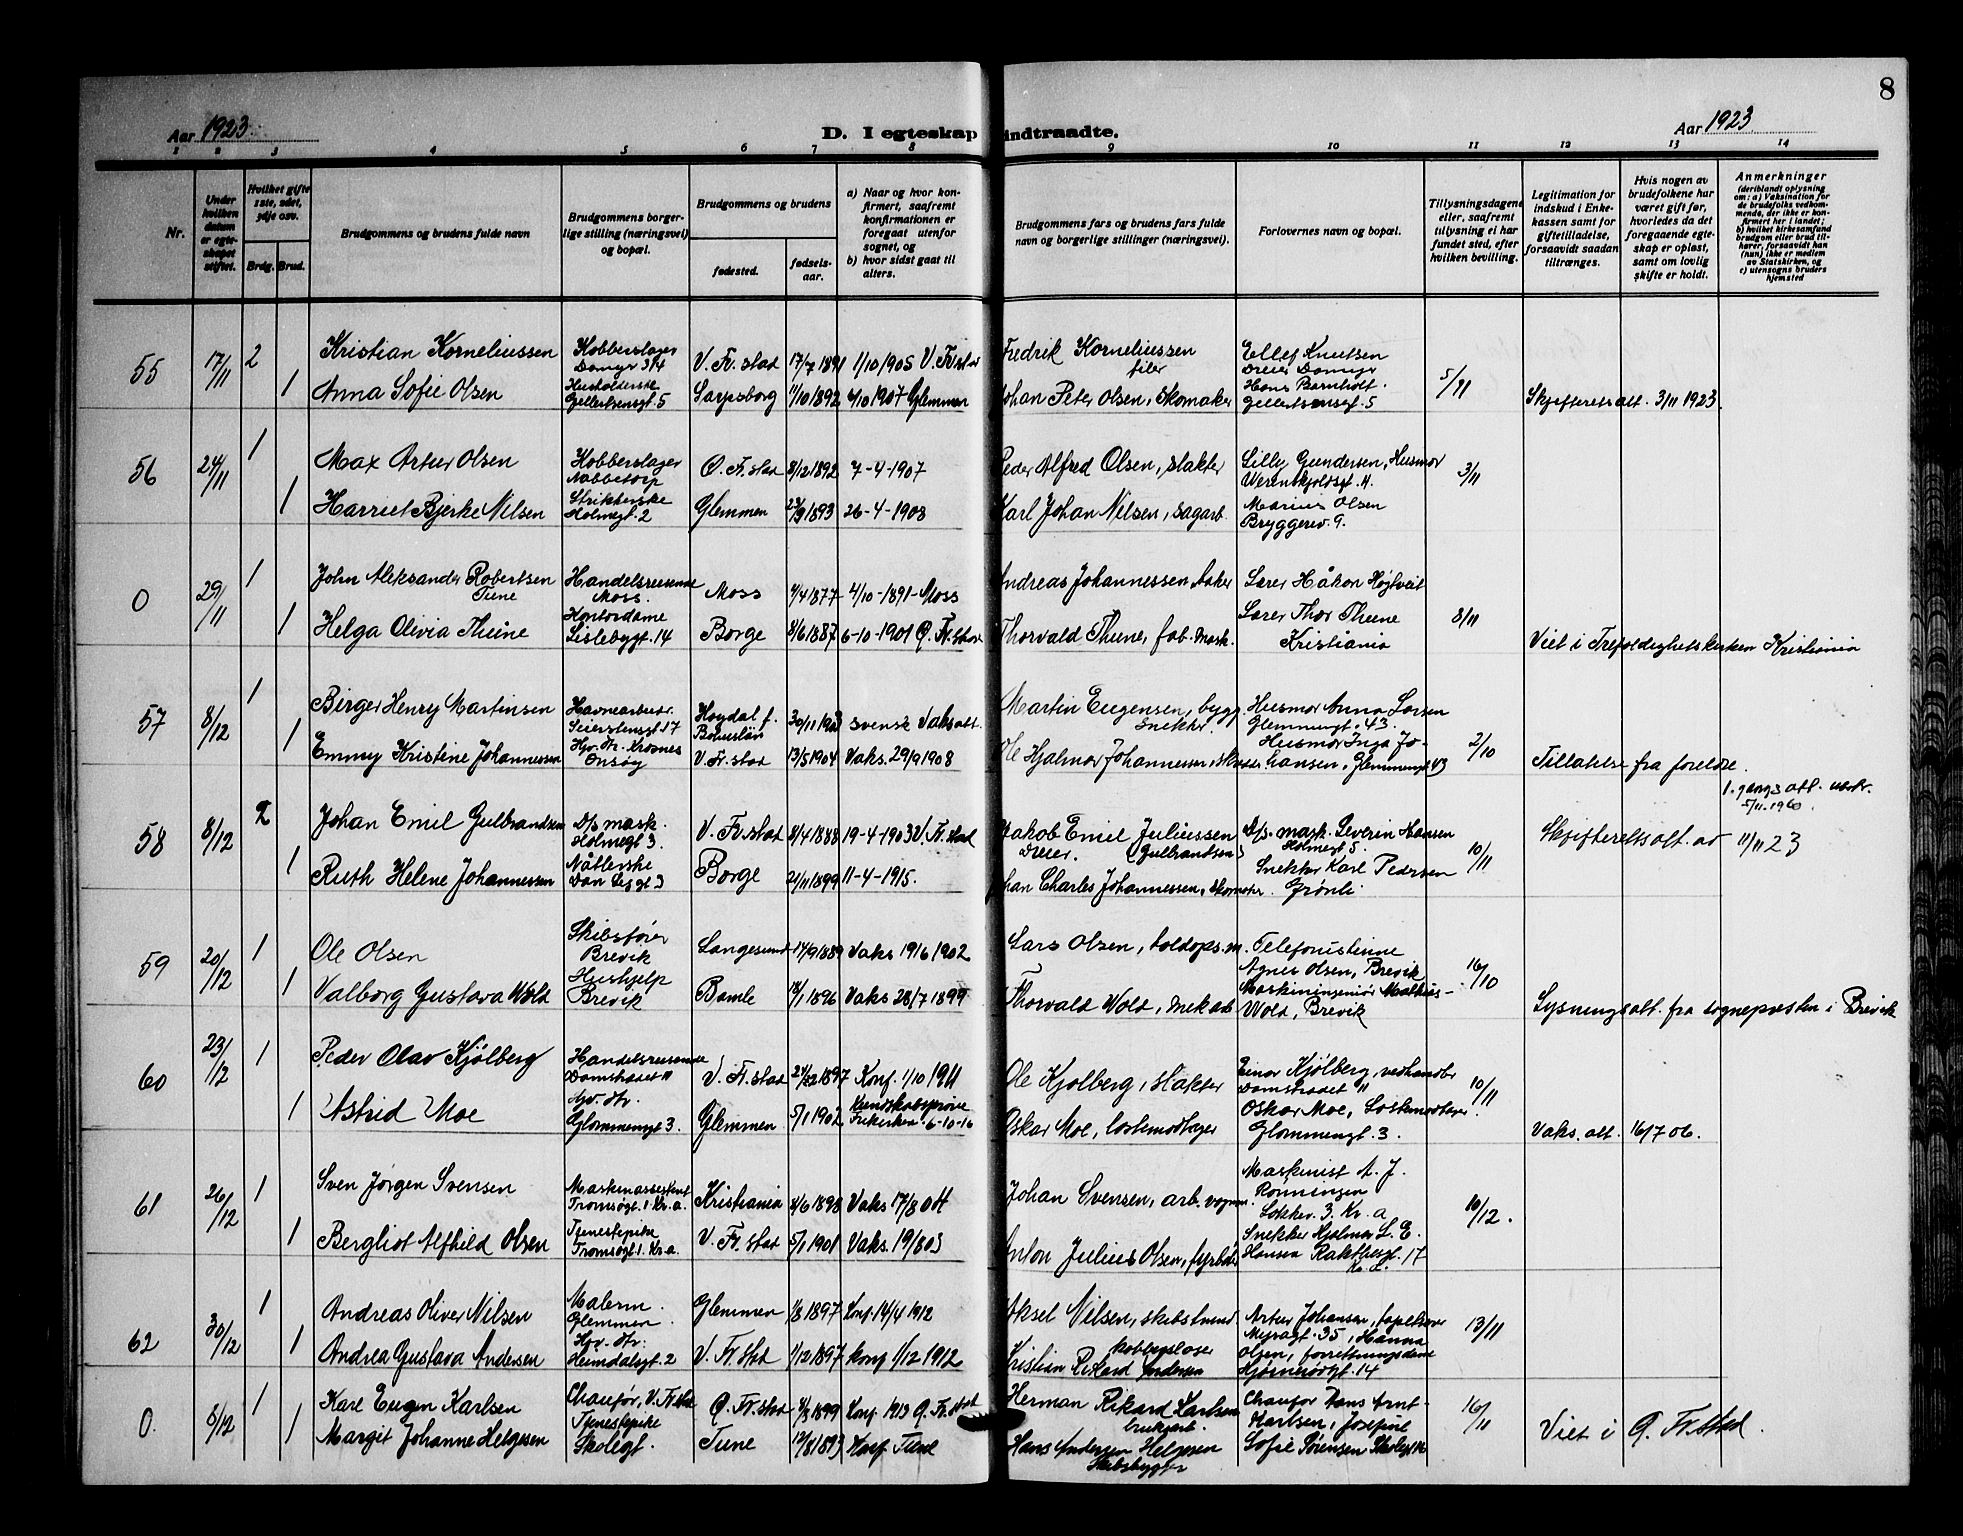 8
Aar 1923.
D. I egteskap indtraadte.
Aar 1923
1 2 3 4 5 6 7 8 9 10 11 12 13 14
Nr.
Under hvilken datum er egteskapet stiftet.
Hvilket gifte 1ste, 2det, 3dje osv.
Brdg. Brud.
Brudgommens og brudens fulde navn
Brudgommens borgerlige stilling (næringsvei) og bopæl.
Brudgommens og brudens
fødested.
fødselsaar.
a) Naar og hvor konfirmert, saafremt konfirmationen er foregaat utenfor sognet, og
b) hvor sidst gaat til alters.
Brudgommens fars og brudens fars fulde navn og borgerlige stillinger (næringsvei).
Forlovernes navn og bopæl.
Tillysningsdagene eller, saafremt tillysning ei har fundet sted, efter hvilken bevilling.
Legitimation for indskud i Enkekassen samt for giftetilladelse, forsaavidt saadan tiltrænges.
Hvis nogen av brudefolkene har været gift før, hvorledes da det foregaaende egteskap er opløst, samt om lovlig skifte er holdt.
Anmerkninger
(deriblandt oplysning om: a) Vaksination for de brudefolks vedkommende, der ikke er konfirmert her i landet; b) hvilket kirkesamfund brudgom eller brud tilhører, forsaavidt han (hun) ikke er medlem av Statskirken, og c) utensogns bruders hjemsted
55 17/11 2 Kristian Korneliussen Kobberslager Damyr 3/4 V. Fr.stad 17/7 1891 1/10 1905 V. Fr.stad Fredrik Korneliussen filer Ellef Knutsen Dreier Damyr 5/11
1 Anna Sofie Olsen Husholderske Gellertsensgt. 5 Sarpsborg 11/10 1892 6/10 1907 Glemmen Johan Peter Olsen, Skomaker Hans Barnholt. Gellertsensgt. 5 Skifteretsatt. 3/11 1923.
56 24/11 1 Max Artur Olsen Kobberslager Nabbetorp Ø. Fr.stad 8/12 1892 7-4-1907 Peder Alfred Olsen, slakter Lilly Gundersen, Husmor Werenskjoldsgt. 4. 3/11
1 Harriet Bjerke Nilsen Strikkerske Holmegt. 2 Glemmen 1893 26-4-1908 Karl Johan Nilsen, sagarb. Marius Olsen Bryggerev. 9.
0 29/11 1 John Aleksander Robertsen Tune Handelsreisende Moss. Moss 4/4 1877 4/10-1891-Moss Andreas Johannessen Aaker Lærer Håkon Højtveit 8/11
1 Helga Olivia Thune Kontordame Lislebygt. 14 Borge 8/6 1887 6-10-1901 Ø. Fr.stad Thorvald Thune, fab. mask. Lærer Thor Thune Kristiania Viet i Trefoldighetskirken Kristiania
57 8/12 1 Birger Henry Martinsen Havnearbeidr. Seierstensgt. 17 Høgdal f. Bohuslän 30/11 1903 svensk Vaksatt. Martin Eugensen, bygg. snekker. Husmor Anna Larsen Glemmengt. 43. 2/10
1 Emmy Kristine Johannessen Hjv. dtr. Krosnes Onsøy V. Fr. stad 13/5 1904 Vaks. 29/9 1908 Ole Hjalmar Johannessen, Husmor Inga Johansen, Glemmengt 43 Tillatelse fra foreldre.
58 8/12 2 Johan Emil Gulbrandsen D/s mask. Holmegt 3. V. Fr.stad 8/4 1888 19-4-1903 V. Fr. stad Jakob Emil Juliussen Dreier. (Gulbrandsen) D/s. mask. Severin Hansen Holmegt 5. 10/11 Skifterettsatt. av 11/11 23
1. gangs att. utstr. 5/11.1960.
1 Ruth Helene Johannessen Nåtlerske Borge 21/11 1899 11-4-1915. Johan Charles Johannessen, skomaker Snekker Karl Pedersen Grønli
59 20/12 1 Ole Olsen Skibsfører Brevik Langesund 14/9 1889 Vaks 1916 1902 Lars Olsen, toldops.m. Telefonistinne Agnes Olsen, Brevik 16/10
1 Valborg Gustava Wold Hushjelp Brevik Bamle 18/1 1896 Vaks 28/7 1899 Thorvald Wold, mek arb Maskiningeniør Mathias Wold, Brevik Lysningsatt. fra sognepresten i Brevik
60 23/12 1 Peder Olav Kjølberg Handelsreisende Damstrædet 11 V. Fr. stad 24/12 1897 Konf. 1/10 1911 Ole Kjølberg, slakter Einar Kjølberg, vedhandler Damstradet 11 10/11
1 Astrid Moe Hjv. dtr. Glommengt 3. Glemmen 5/1 1902 Kundskapsprøve Frikirken 6-10-16 Oskar Moe, lastemodtager Oskar Moe, Lastemodtager Glommengt. 3. Vaks. att. 16/7 06.
61 26/12 1 Sven Jørgen Svensen Maskinassistent Tromsøgt. 1 Kr.a. Kristiania 4/6 1898 Vaks 17/8 04 Johan Svensen, arb. Maskinist A. J. Rønningen Løkkev. 3. Kr. a 10/12.
1 Bergliot Alfhild Olsen Tjenestepike Tromsøgt 1. Kr.a. V. Fr. stad 5/1 1901 Vaks. 19/8 03 Anton Julius Olsen, fyrbøter Snekker Hjalmar L. E. Hansen 17
62 30/12 1 Andreas Oliver Nilsen Malerm. Glemmen. Glemmen 1/8 1897 Konf. 14/4 1912 Aksel Nilsen, skibstømrd. Artur Johansen, Myragt. 35, 13/11
1 Andrea Gustava Andersen Hjv. dtr. Heimdalsgt. 2 V. Fr. stad 1/12 1897 konf 1/12 1912 Kristian Rikard Andersen Hanna Olsen, forretningsdame 14
0. 8/12 1 Karl Eugen Karlsen Chauffør, V. Fr.stad Ø. Fr. stad 1899 Konf. 1913 Ø. Fr. stad Herman Rikard Larlsen brukarb. Chauffør Hans Arnt Karlsen, 16/11 Viet i Ø. Fr. stad.
1 Margit Johanne Helgesen Tjenestepike Skolegt. Tune 12/8 1893 Konf. Tune Hans Andersen Helgesen Skibsbygger Josefine Sofie Sørensen Skolegt